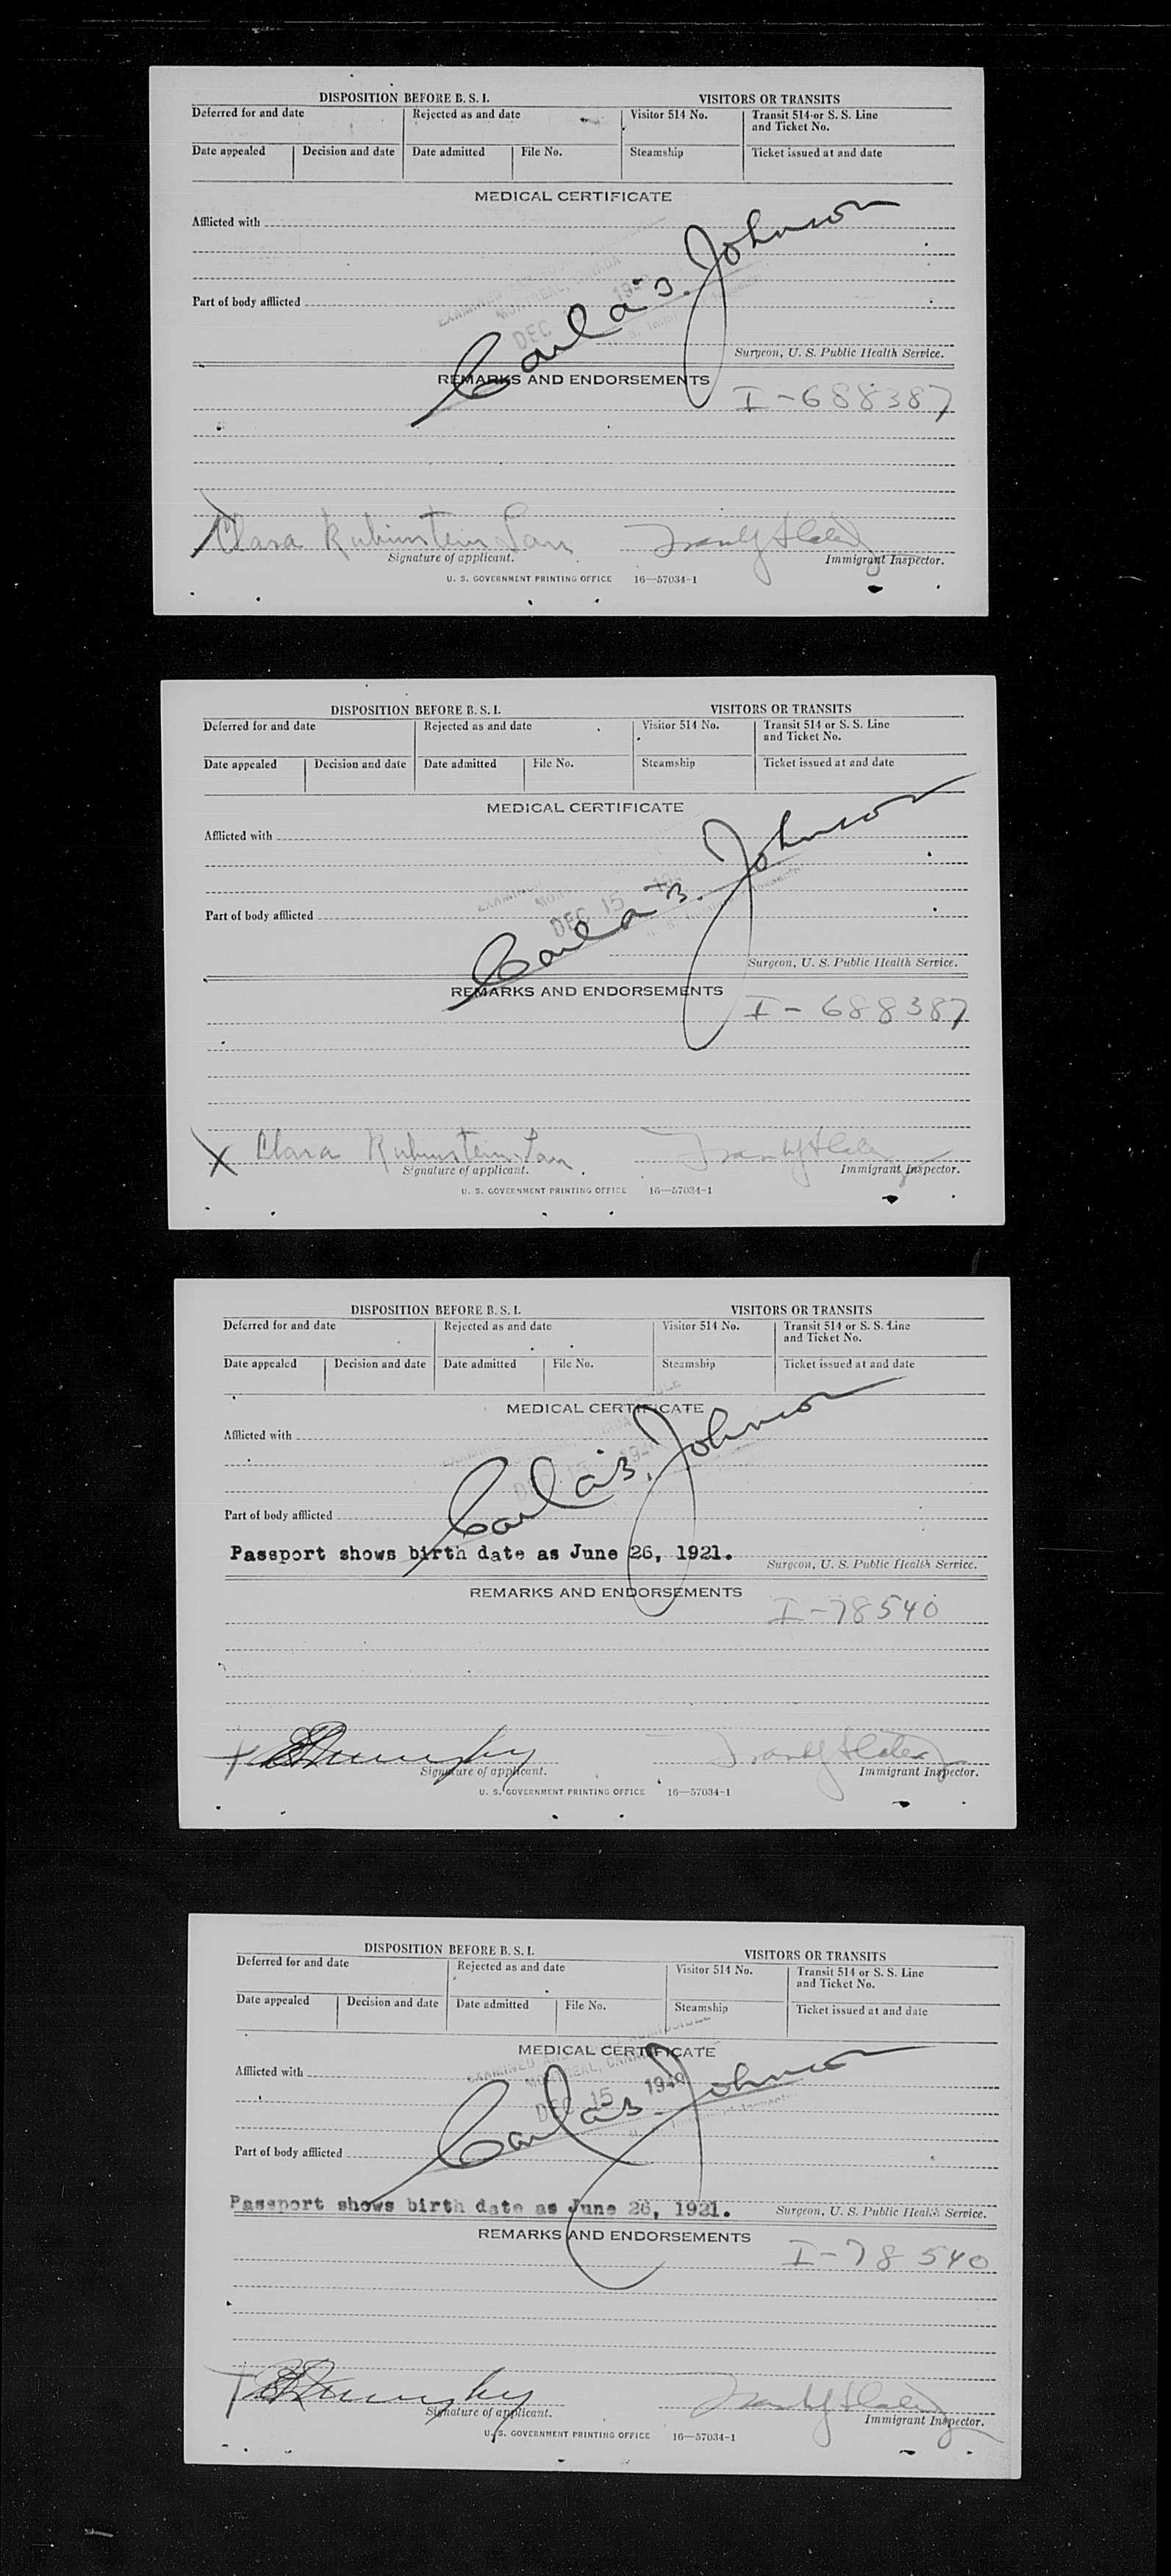 DISPOSITION BEFORE B. S. I.
VISITORS OR TRANSITS
Deferred for and date
Rejected as and date
Visitor 514 No.
Transit 514 or S. S. Line
and Ticket No.
Date appealed
Decision and date
Date admitted
File No.
Steamship
Ticket issued at and date
MEDICAL CERTIFICATE
Afflicted with
DEC
Carl a B. Johnson
Part of body afflicted
Surgeon, U. S. Public Health Service.
REMARKS AND ENDORSEMENTS
I-688387
Clara Rubinstein
Signature of applicant.
Immigrant Inspector.
U. S. GOVERNMENT PRINTING OFFICE 16—57034-1
DISPOSITION BEFORE B. S. I.
VISITORS OR TRANSITS
Deferred for and date
Rejected as and date
Visitor 514 No.
Transit 514 or S. S. Line
and Ticket No.
Date appealed
Decision and date
Date admitted
File No.
Steamship
Ticket issued at and date
MEDICAL CERTIFICATE
Afflicted with
DEC 15
Carl a B. Johnson
Part of body afflicted
Surgeon, U. S. Public Health Service.
REMARKS AND ENDORSEMENTS
I-688387
X Clara Rubinstein
Signature of applicant.
Immigrant Inspector.
U. S. GOVERNMENT PRINTING OFFICE 16—57034-1
DISPOSITION BEFORE B. S. I.
VISITORS OR TRANSITS
Deferred for and date
Rejected as and date
Visitor 514 No.
Transit 514 or S. S. Line
and Ticket No.
Date appealed
Decision and date
Date admitted
File No.
Steamship
Ticket issued at and date
MEDICAL CERTIFICATE
Afflicted with
Carl a B. Johnson
Part of body afflicted
Passport shows birth date as June 26, 1921.
Surgeon, U. S. Public Health Service.
REMARKS AND ENDORSEMENTS
I-78540
Signature of applicant.
Immigrant Inspector.
U. S. GOVERNMENT PRINTING OFFICE 16—57034-1
DISPOSITION BEFORE B. S. I.
VISITORS OR TRANSITS
Deferred for and date
Rejected as and date
Visitor 514 No.
Transit 514 or S. S. Line
and Ticket No.
Date appealed
Decision and date
Date admitted
File No.
Steamship
Ticket issued at and date
MEDICAL CERTIFICATE
Afflicted with
EXAMINED
MONTREAL, CANADA
DEC 15 1940
Carl a B. Johnson
Part of body afflicted
Passport shows birth date as June 26, 1921.
Surgeon, U. S. Public Health Service.
REMARKS AND ENDORSEMENTS
I-78540
Signature of applicant.
Immigrant Inspector.
U. S. GOVERNMENT PRINTING OFFICE 16—57034-1